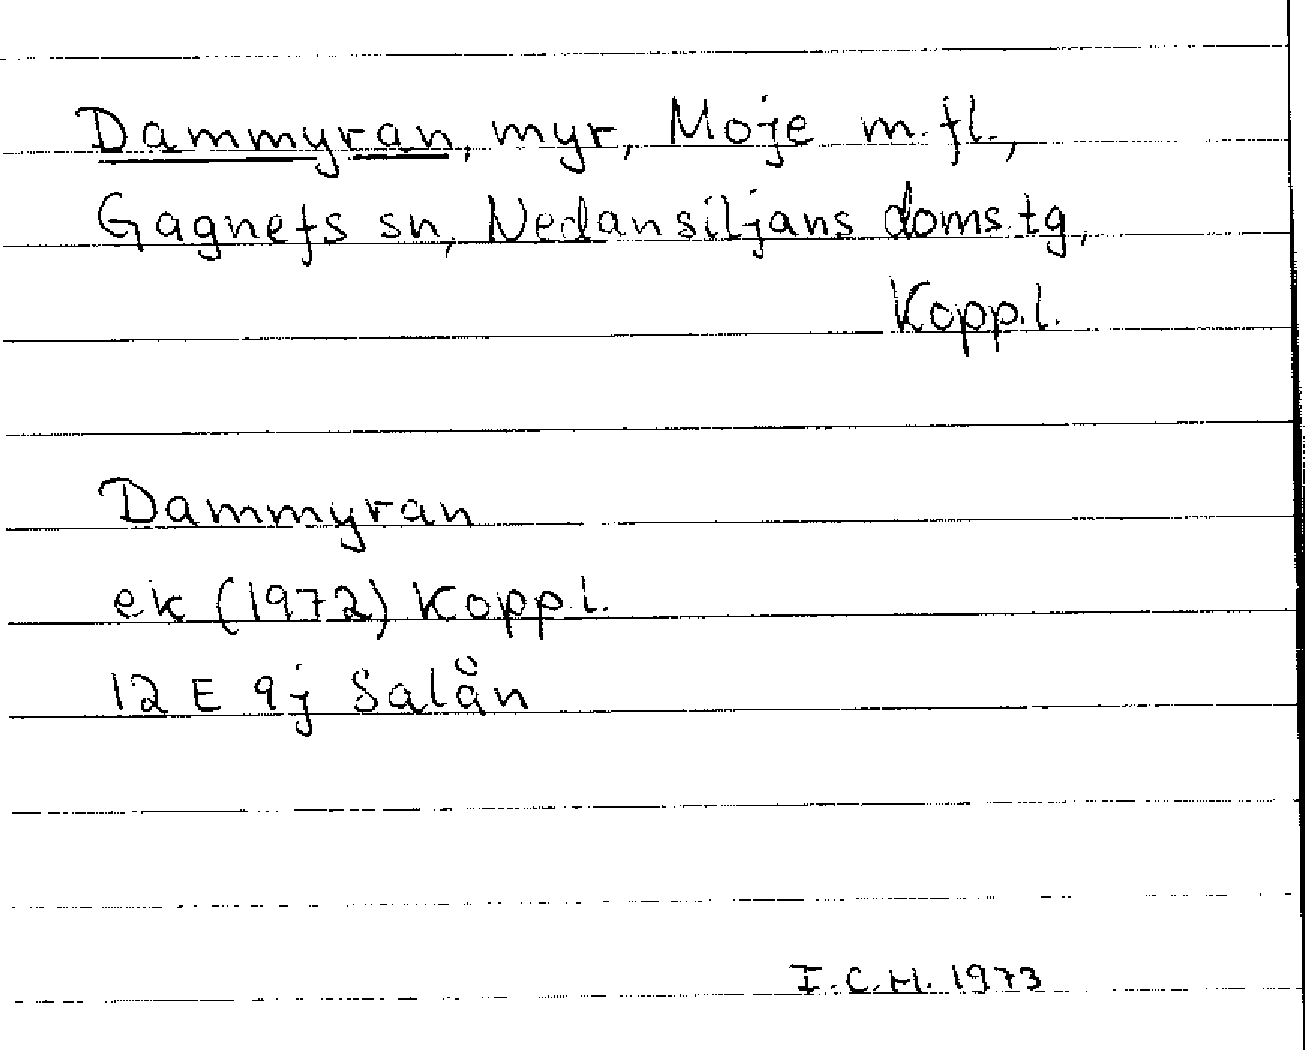 Dammyran, myr, Moje m.fl.,
Gagnefs sn, Nedansiljans doms.tg,
Kopp.l.
Dammyran
ek (1972) Kopp.l.
12 E 9j Salån
I.C.H. 1973